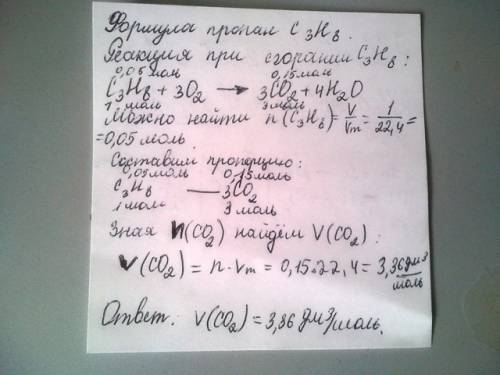 Формула пропан C₃H₈.
Реакция при сгорании C₃H₈:
0,05моль 0,15моль
C₃H₈ + 3O₂ → 3CO₂ + 4H₂O
1 моль 3моль
Можно найти n(C₃H₈) = V/Vm = 1/22,4 =
= 0,05 моль.
Составим пропорцию:
0,05моль 0,15моль
C₃H₈ — 3CO₂
1 моль 3 моль
Зная n(CO₂) найдём V(CO₂):
V(CO₂) = n · Vm = 0,15·22,4 = 3,36 дм³/моль
Ответ: V(CO₂) = 3,36 дм³/моль.